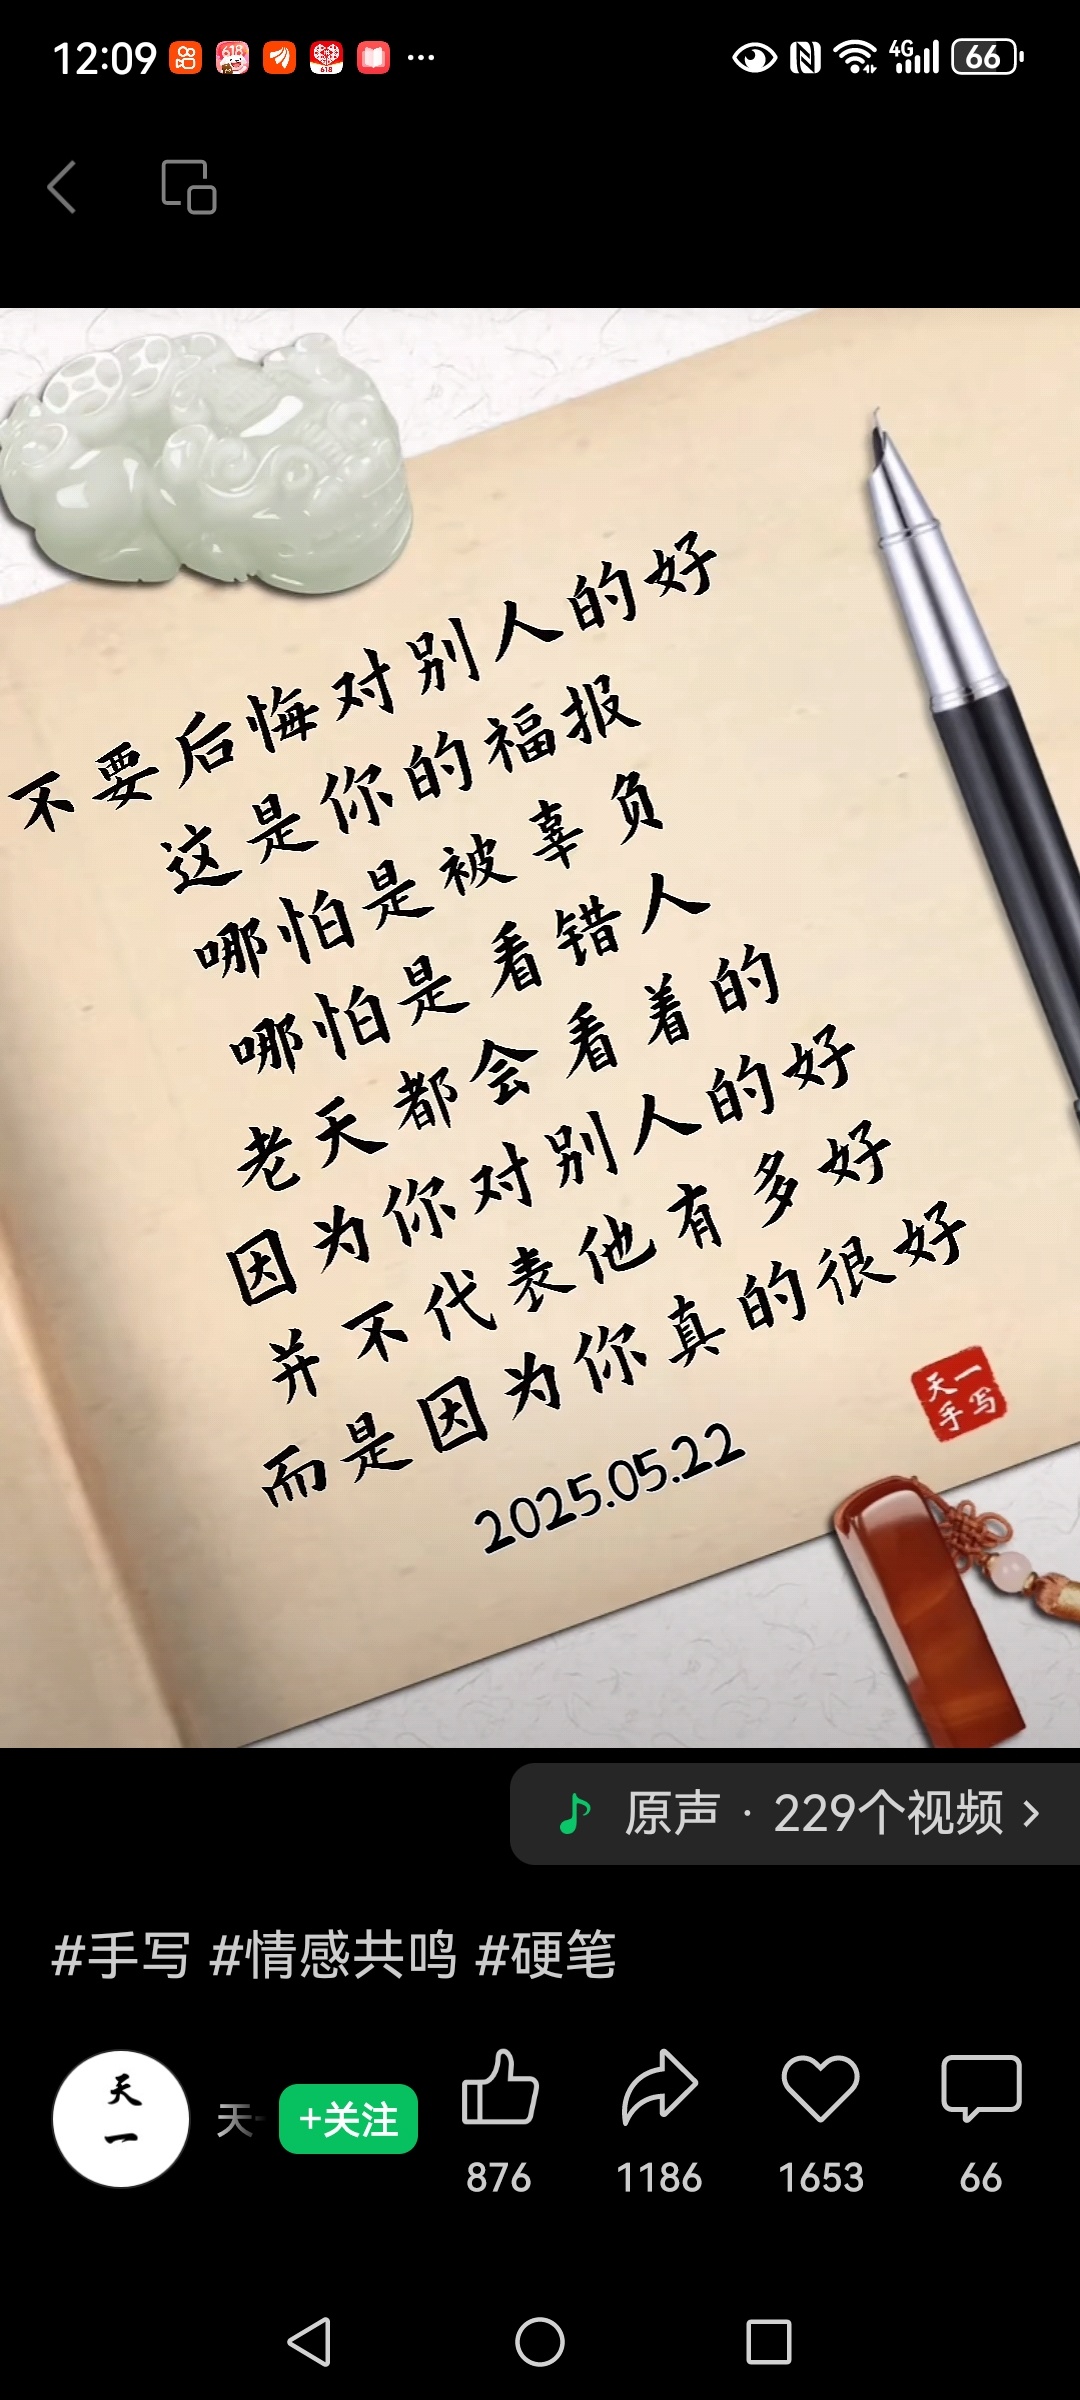 12:09
618
618
4G
66
不要后悔对别人的好
这是你的福报
哪怕是被辜负
哪怕是看错人
老天都会看着的
因为你对别人的好
并不代表他有多好
而是因为你真的很好
2025.05.22
天一
手写
原声 · 229个视频
#手写 #情感共鸣 #硬笔
天一
天
+关注
876
1186
1653
66